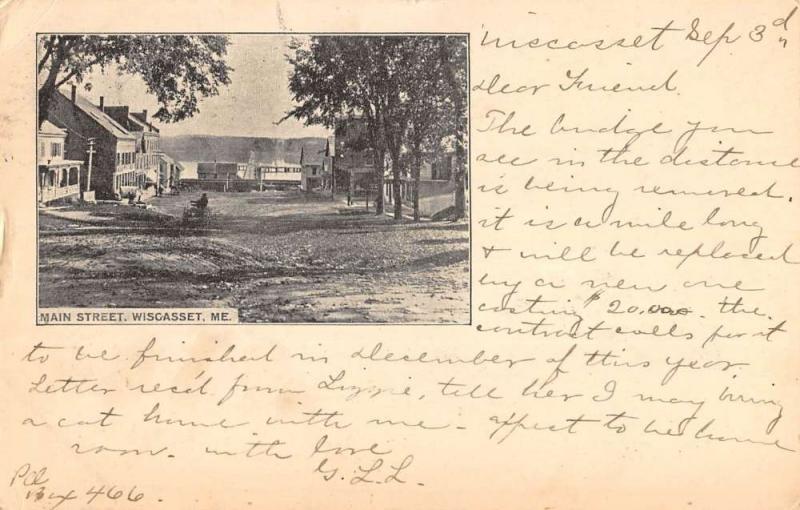 Wiscasset Sep 3d
Dear Friend.
The bridge you
see in the distance
is being removed.
it is a mile long
& will be replaced
by a new one
costing $20.000. the
contract calls for it
MAIN STREET, WISCASSET, ME.
to be finished in December of this year
Letter rec'd from Lizzie, tell her I may bring
a cat home with me - expect to be home
soon. with love
G. L. L.
P.O.
Box 466.